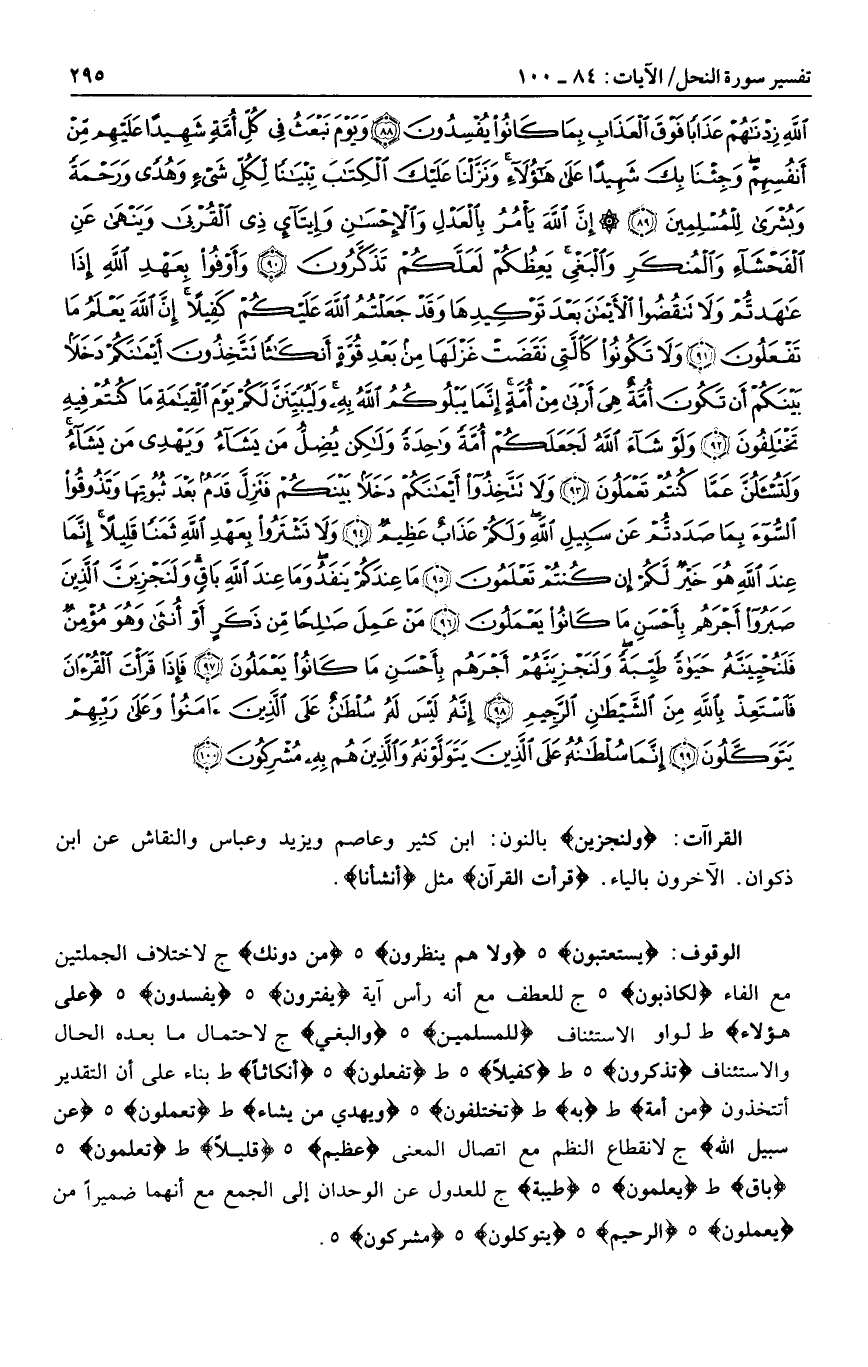 تفسير سورة النحل/ الآيات: ٨٤ ـ ١٠٠ ٢٩٥
اللَّهِ زِدْنَٰهُمْ عَذَابًا فَوْقَ ٱلْعَذَابِ بِمَا كَانُوا۟ يُفْسِدُونَ ﴿٨٨﴾ وَيَوْمَ نَبْعَثُ فِى كُلِّ أُمَّةٍ شَهِيدًا عَلَيْهِم مِّنْ
أَنفُسِهِمْ ۖ وَجِئْنَا بِكَ شَهِيدًا عَلَىٰ هَٰٓؤُلَآءِ ۚ وَنَزَّلْنَا عَلَيْكَ ٱلْكِتَٰبَ تِبْيَٰنًا لِّكُلِّ شَىْءٍ وَهُدًى وَرَحْمَةً
وَبُشْرَىٰ لِلْمُسْلِمِينَ ﴿٨٩﴾ ۞ إِنَّ ٱللَّهَ يَأْمُرُ بِٱلْعَدْلِ وَٱلْإِحْسَٰنِ وَإِيتَآئِ ذِى ٱلْقُرْبَىٰ وَيَنْهَىٰ عَنِ
ٱلْفَحْشَآءِ وَٱلْمُنكَرِ وَٱلْبَغْىِ ۚ يَعِظُكُمْ لَعَلَّكُمْ تَذَكَّرُونَ ﴿٩٠﴾ وَأَوْفُوا۟ بِعَهْدِ ٱللَّهِ إِذَا
عَٰهَدتُّمْ وَلَا نَنقُضُوا۟ ٱلْأَيْمَٰنَ بَعْدَ تَوْكِيدِهَا وَقَدْ جَعَلْتُمُ ٱللَّهَ عَلَيْكُمْ كَفِيلًا ۚ إِنَّ ٱللَّهَ يَعْلَمُ مَا
تَفْعَلُونَ ﴿٩١﴾ وَلَا تَكُونُوا۟ كَٱلَّتِى نَقَضَتْ غَزْلَهَا مِنۢ بَعْدِ قُوَّةٍ أَنكَٰثًا نَتَّخِذُونَ أَيْمَٰنَكُمْ دَخَلًۢا
بَيْنَكُمْ أَن تَكُونَ أُمَّةٌ هِىَ أَرْبَىٰ مِنْ أُمَّةٍ ۚ إِنَّمَا يَبْلُوكُمُ ٱللَّهُ بِهِۦ ۚ وَلَيُبَيِّنَنَّ لَكُمْ يَوْمَ ٱلْقِيَٰمَةِ مَا كُنتُمْ فِيهِ
تَخْتَلِفُونَ ﴿٩٢﴾ وَلَوْ شَآءَ ٱللَّهُ لَجَعَلَكُمْ أُمَّةً وَٰحِدَةً وَلَٰكِن يُضِلُّ مَن يَشَآءُ وَيَهْدِى مَن يَشَآءُ ۚ
وَلَتُسْـَٔلُنَّ عَمَّا كُنتُمْ تَعْمَلُونَ ﴿٩٣﴾ وَلَا نَتَّخِذُوٓا۟ أَيْمَٰنَكُمْ دَخَلًۢا بَيْنَكُمْ فَتَزِلَّ قَدَمٌۢ بَعْدَ ثُبُوتِهَا وَتَذُوقُوا۟
ٱلسُّوٓءَ بِمَا صَدَدتُّمْ عَن سَبِيلِ ٱللَّهِ ۖ وَلَكُمْ عَذَابٌ عَظِيمٌ ﴿٩٤﴾ وَلَا تَشْتَرُوا۟ بِعَهْدِ ٱللَّهِ ثَمَنًا قَلِيلًا ۚ إِنَّمَا
عِندَ ٱللَّهِ هُوَ خَيْرٌ لَّكُمْ إِن كُنتُمْ تَعْلَمُونَ ﴿٩٥﴾ مَا عِندَكُمْ يَنفَدُ ۖ وَمَا عِندَ ٱللَّهِ بَاقٍ ۗ وَلَنَجْزِيَنَّ ٱلَّذِينَ
صَبَرُوٓا۟ أَجْرَهُم بِأَحْسَنِ مَا كَانُوا۟ يَعْمَلُونَ ﴿٩٦﴾ مَنْ عَمِلَ صَٰلِحًا مِّن ذَكَرٍ أَوْ أُنثَىٰ وَهُوَ مُؤْمِنٌ
فَلَنُحْيِيَنَّهُۥ حَيَوٰةً طَيِّبَةً ۖ وَلَنَجْزِيَنَّهُمْ أَجْرَهُم بِأَحْسَنِ مَا كَانُوا۟ يَعْمَلُونَ ﴿٩٧﴾ فَإِذَا قَرَأْتَ ٱلْقُرْءَانَ
فَٱسْتَعِذْ بِٱللَّهِ مِنَ ٱلشَّيْطَٰنِ ٱلرَّجِيمِ ﴿٩٨﴾ إِنَّهُۥ لَيْسَ لَهُۥ سُلْطَٰنٌ عَلَى ٱلَّذِينَ ءَامَنُوا۟ وَعَلَىٰ رَبِّهِمْ
يَتَوَكَّلُونَ ﴿٩٩﴾ إِنَّمَا سُلْطَٰنُهُۥ عَلَى ٱلَّذِينَ يَتَوَلَّوْنَهُۥ وَٱلَّذِينَ هُم بِهِۦ مُشْرِكُونَ ﴿١٠٠﴾
القراآت: ﴿ولنجزين﴾ بالنون: ابن كثير وعاصم ويزيد وعباس والنقاش عن ابن
ذكوان. الآخرون بالياء. ﴿قرأت القرآن﴾ مثل ﴿أنشأنا﴾.
الوقوف: ﴿يستعتبون﴾ ٥ ﴿ولا هم ينظرون﴾ ٥ ﴿من دونك﴾ ج لاختلاف الجملتين
مع الفاء ﴿لكاذبون﴾ ٥ ج للعطف مع أنه رأس آية ﴿يفترون﴾ ٥ ﴿يفسدون﴾ ٥ ﴿على
هؤلاء﴾ ط لواو الاستئناف ﴿للمسلمين﴾ ٥ ﴿والبغي﴾ ج لاحتمال ما بعده الحال
والاستئناف ﴿تذكرون﴾ ٥ ط ﴿كفيلاً﴾ ٥ ط ﴿تفعلون﴾ ٥ ﴿أنكاثاً﴾ ط بناء على أن التقدير
أتتخذون ﴿من أمة﴾ ط ﴿به﴾ ط ﴿تختلفون﴾ ٥ ﴿ويهدي من يشاء﴾ ط ﴿تعملون﴾ ٥ ﴿عن
سبيل الله﴾ ج لانقطاع النظم مع اتصال المعنى ﴿عظيم﴾ ٥ ﴿قليلاً﴾ ط ﴿تعلمون﴾ ٥
﴿باق﴾ ط ﴿يعلمون﴾ ٥ ﴿طيبة﴾ ج للعدول عن الوحدان إلى الجمع مع أنهما ضميراً من
﴿يعملون﴾ ٥ ﴿الرحيم﴾ ٥ ﴿يتوكلون﴾ ٥ ﴿مشركون﴾ ٥.